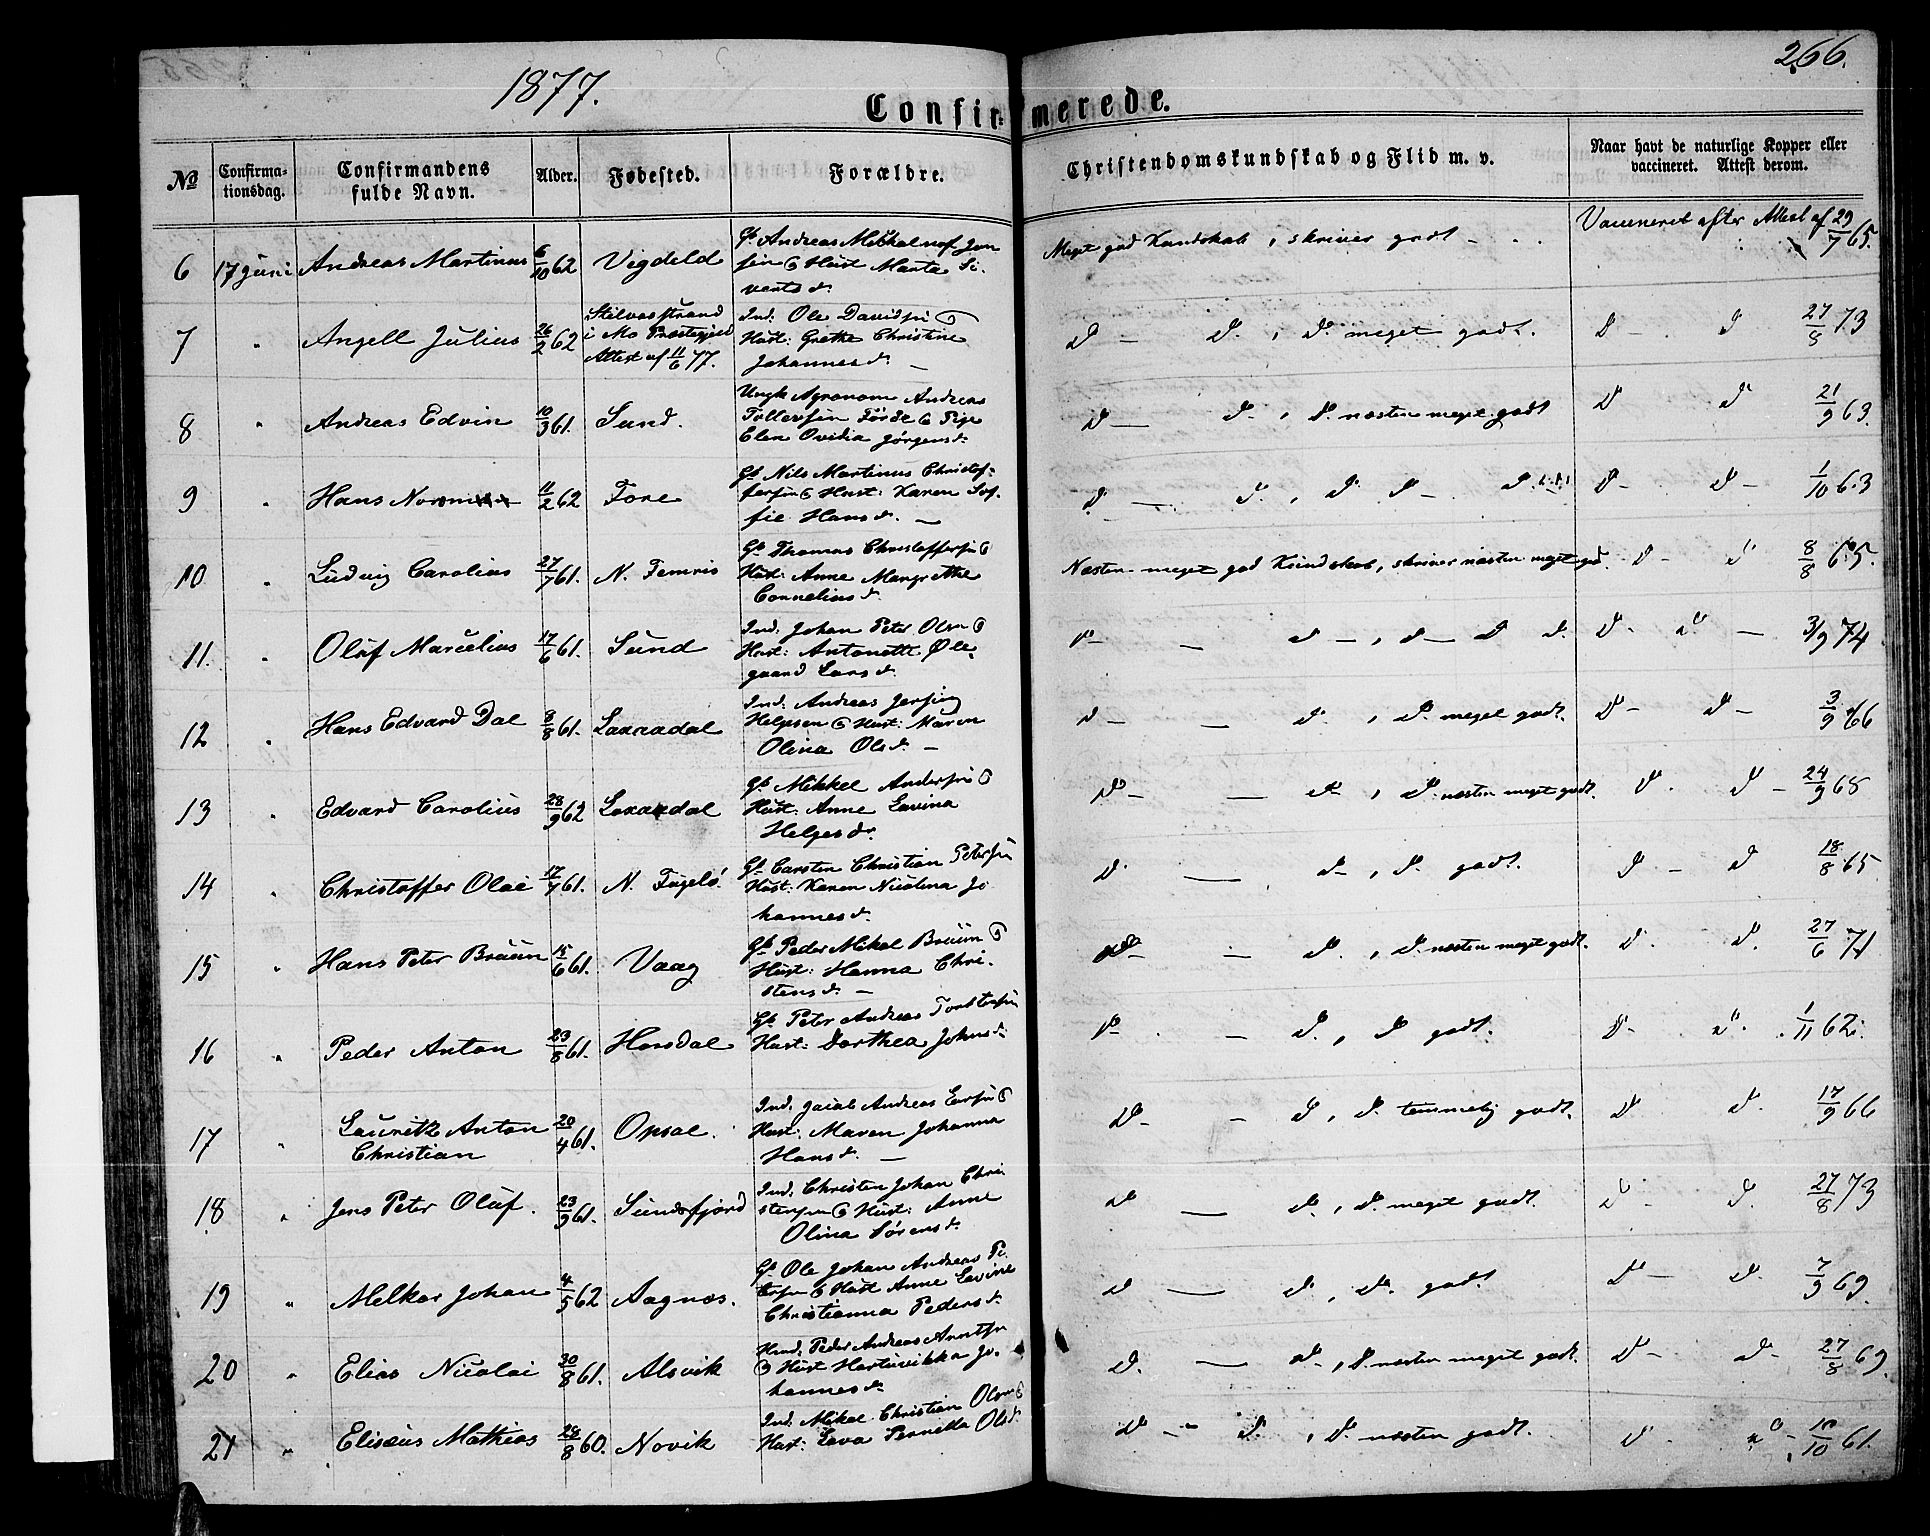 1877.
266.
Confirmerede.
No
Confirmationsdag.
Confirmandens fulde Navn.
Alder.
Fødested.
Forældre.
Christendomskundskab og Flid m. v.
Naar havt de naturlige Kopper eller vaccineret. Attest derom.
6 17 Juni Andreas Martinus 6/10 62 Vigdeld Gb. Andreas Mickal
Marta Si-
verts d. Meget god Kundskab, skriver godt - Vaccineret efter Attest af 29/7 65.
7 " Angell Julius 26/2 62 Stilvasstrand
i Mo Præstegjeld
Attest af 11/6 77. Ind. Ole Davidsøn &
Hust: Grethe Christine
Johannesd. D - D. , D. meget godt. D - D 27/8 73
8 " Andreas Edvin 10/3 61. Sund. Ungk. Agronom Andreas
Tollefsen Førde & Pige
Elen Ovidia Jørgensd. D - D. , D. næsten meget godt D D 21/9 63.
9 " Hans Norman 11/2 62 Fore Gb. Nils Martinus Christof-
fersen & Hust: Karen Sof-
fie Hansd. D - D. , D. D - D. D - D - 1/10 63
10 " Ludvig Carolius 27/7 61. N. Femris Gb. Thomas Christoffersen &
Hust: Anne Margrethe
Corneliusd. Næsten meget god Kundskab, skriver næsten meget godt. D - D 8/8 65.
11. " Oluf Marcelius 17/6 61. Sund Ind. Johan Peter Olsen &
Hust: Antonette Øle-
gaard Larsd. D - D - , D - D D. D - D - 3/9 74
12 " Hans Edvard Dal 8/8 61. Laxaadal Ind. Andreas
Helgesen & Hust: Maren
Olina Olsd. D - - D. , D. meget godt. D - D - 3/9 66
13 " Edvard Carolius 28/9 62 Laxaadal Gb. Mikkel Andersen &
Hust: Anne Lavina
Helgesdr. D - - D - , D. næsten meget godt. D. D - 24/9 68
14 " Christoffer Olai 17/7 61. N. Fugelø. Gb. Carsten Christian Petersen
Hust: Karen Nicolina Jo
hannesd. D. - D - , D. godt. D - D 18/8 65.
15 " Hans Peter Bruun 15/6 61. Vaag Gb. Peder Mikal Bruun &
Hust: Hanna Chri-
stensd. - D - - D. , D. næsten meget godt. D. D. 27/6 71
16 " Peder Anton 23/8 61. Horsdal Gb. Peter Andreas
Hust: Dorthea Johnsd. D - - D. , D godt. D - D. 1/11 62.
17 " Lauritz Anton
Christian 20/4 61. Opsal. Ind. Jacob Andreas
Hust: Maren Johanna
Hansd. - D - - D , D. temmelig godt. D D. 17/9 66
18 " Jens Peter Oluf. 23/9 61. Sundsfjord Ind. Christen Johan Chri
stensen & Hust: Anne
Olina Sørensd. D - D. , D. meget godt. D - D. 27/8 73
19 " Melker Johan 4/5 62 Aagnæs. Gb. Ole Johan Andreas Pe
tersen & Hust Anne Lavine
Christianna Pedersd. D - D , D. godt. D - D. 7/9 69.
20 " Elias Nicolai 30/8 61. Alsvik Peder Andreas Arntsen
& Hust Hartvikka Jo-
hannesd. D. - D - , D. næsten meget godt. D - D - 27/8 69.
21 " Elisæus Mathias 28/8 60. Novik Ind. Mikal Christian Olsen &
Hust: Lava Pernella Olsd. D - D. , D. næsten godt. D - D - 10/10 61.